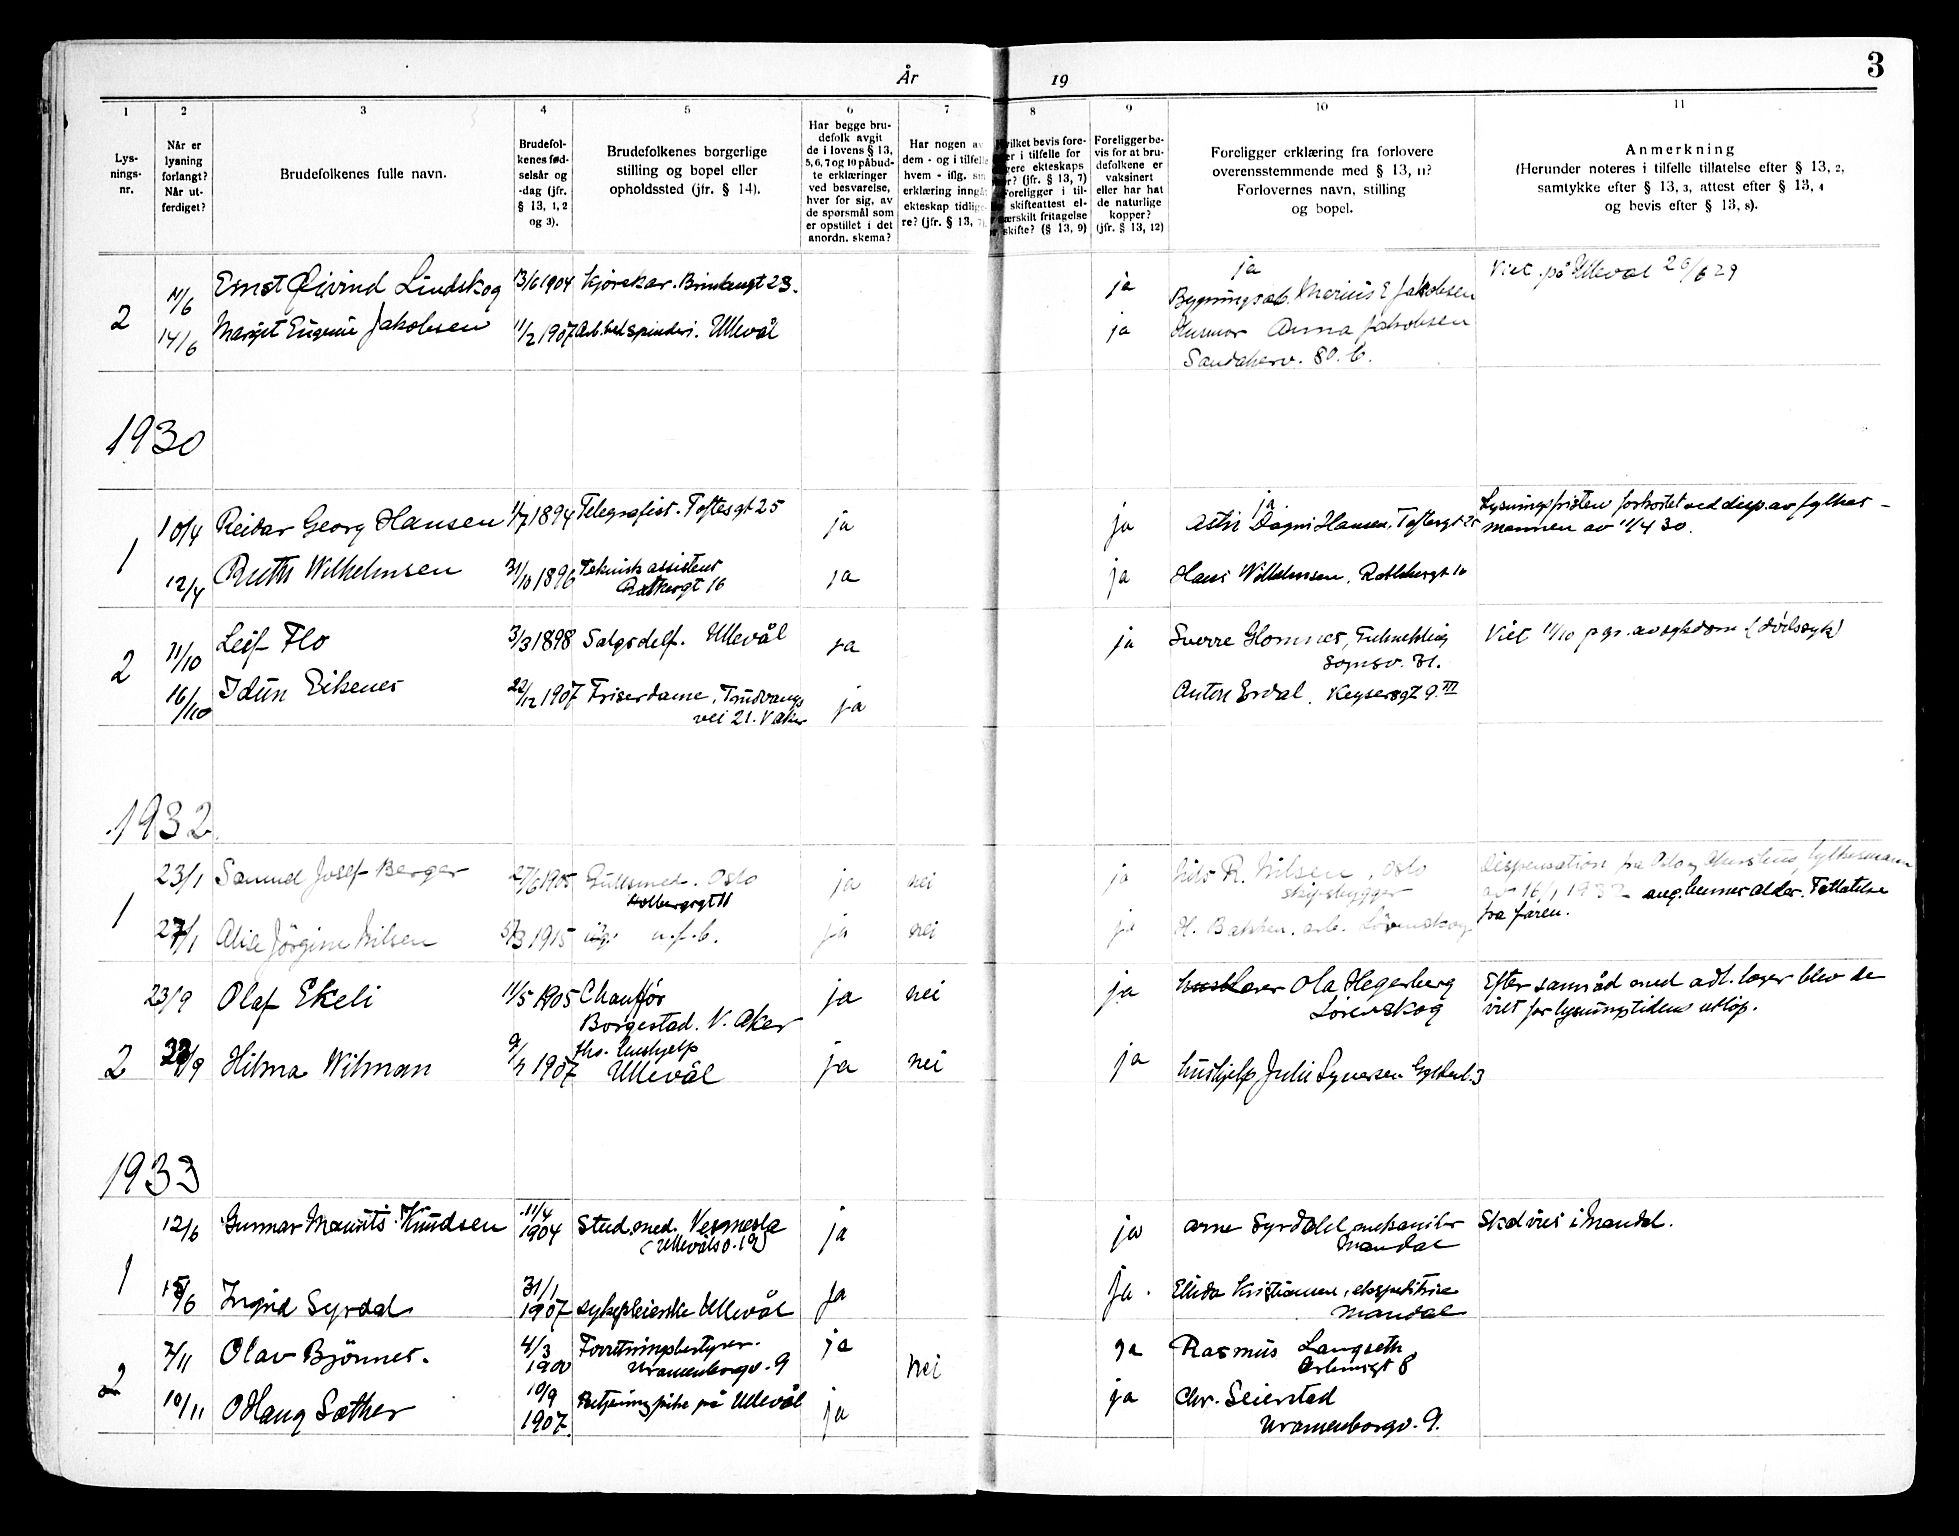 År 19
3
1
2
3
4
5
6
7
8
9
10
11
Lys-
nings-
nr.
Når er
lysning
forlangt?
Når ut-
ferdiget?
Brudefolkenes fulle navn.
Brudefol-
kenes fød-
selsår og
-dag (jfr.
§ 13, 1, 2
og 3).
Brudefolkenes borgerlige
stilling og bopel eller
opholdssted (jfr. § 14).
Har begge bru-
defolk avgit
de i lovens § 13,
5, 6, 7 og 10 påbud-
te erklæringer
ved besvarelse,
hver for sig, av
de spørsmål som
er opstillet i det
anordn. skema?
Har nogen av
dem - og i tilfelle
hvem - iflg.
erklæring inngå
ekteskap tidlige-
re? (jfr. § 13,
vilket bevis fore-
er i tilfelle for
gere ekteskaps
r? (jfr. § 13, 7)
Foreligger i til-
skifteattest el-
ærskilt fritagelse
skifte? (§ 13, 9)
Foreligger be-
vis for at bru-
defolkene er
vaksinert
eller har hat
de naturlige
kopper?
(jfr. § 13, 12)
Foreligger erklæring fra forlovere
overensstemmende med § 13, 11?
Forlovernes navn, stilling
og bopel.
Anmerkning
(Herunder noteres i tilfelle tillatelse efter § 13, 2,
samtykke efter § 13, 3, attest efter § 13, 4
og bevis efter § 13, 8).
2
11/6 Ernst Øivind Lindskog 13/6 1904 Kjørekar. 23. ja ja Marius E Jakobsen Viet på Ullevål 26/6 29
14/6 Margit Eugenie Jakobsen 11/2 1907 Ullevål ja Husmor Anna Jakobsen
Sandakerv. 80. b.
1930
1
10/4 Reidar Georg Hansen 1/7 1894 Telegrafist. Toftesgt 25 ja ja ja Astri Dagni Hansen, Toftesgt 25 Lysningsfristen forkortet ved disp. av fylkes-
mannen av 11/4 30.
12/4 Ruth Wilhelmsen 31/10 1896 Teknisk assistent
16 ja ja Hans Wilhelmsen,
2
11/10 Leif Flo 3/3 1898 Salgsdelf. Ullevål ja ja Sverre Glomnes,
Sognsv. 31.
Viet 11/10 p gr. av sykdom (dødssyk)
16/10 Idun Eikenes 22/12 1907 Friserdame, Trudvangs
vei 21. V Aker ja Anton Erdal, Keysersgt 9 III
1932
1
23/1 Samuel Josef Berger 27/6 1905 Gullsmed. Oslo
Holbergsgt 11 ja nei ja Nils R. Nilsen, Oslo
skipsbygger
Dispensation fra Oslo og Akershus fylkesmann
av 16/1 1932 ang. hennes alder. Tillatelse
fra faren.
27/1 Alice Jörgine Nilsen 5/3 1915 u.f.b. ja nei ja H. Bakken. arb. Lörenskog
2
23/9 Olaf Ekeli 11/5 1905 Chauffør
Borgestad. V. Aker ja nei ja Ola Hegerberg
Lörenskog
Efter samråd med adl. læger blev de
viet før lysningstidens utlöp.
23/9 Hilma Wilman 9/7 1907 fhv. hushjelp
Ullevål ja nei ja hushjelp Julie Syversen
1933
1
12/6 Gunnar Maurits Knudsen 11/4
1904 Stud. med. Vegnesla
(Ullevålsv. 19) ja ja Arne Syrdahl, mekaniker
Mandal
Skal vies i Mandal.
15/6 Ingrid Syrdal 31/1
1907 Sykepleierske Ullevål ja ja. Elida Kristiansen, ekspeditrise
Mandal
2
7/11 Olav Bjönnes. 4/3
1900 Forretningsbestyrer.
Uranienborgv. 9 ja nei ja Rasmus Langseth
8
10/11 Sæther 10/9
1907. på Ullevål ja ja Chr. Seierstad
Uranienborgv. 9.